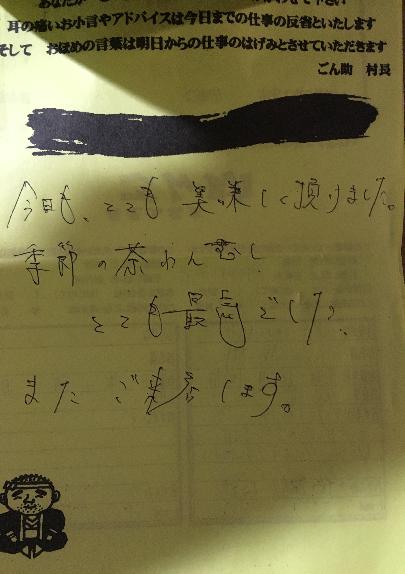 あなたが
耳の痛いお小言やアドバイスは今日までの仕事の反省といたします
そして　おほめの言葉は明日からの仕事のはげみとさせていただきます
ごん助　村長
今日も、とても美味しく頂けました。
季節の茶わん蒸し
とても最高でした。
また ご来します。